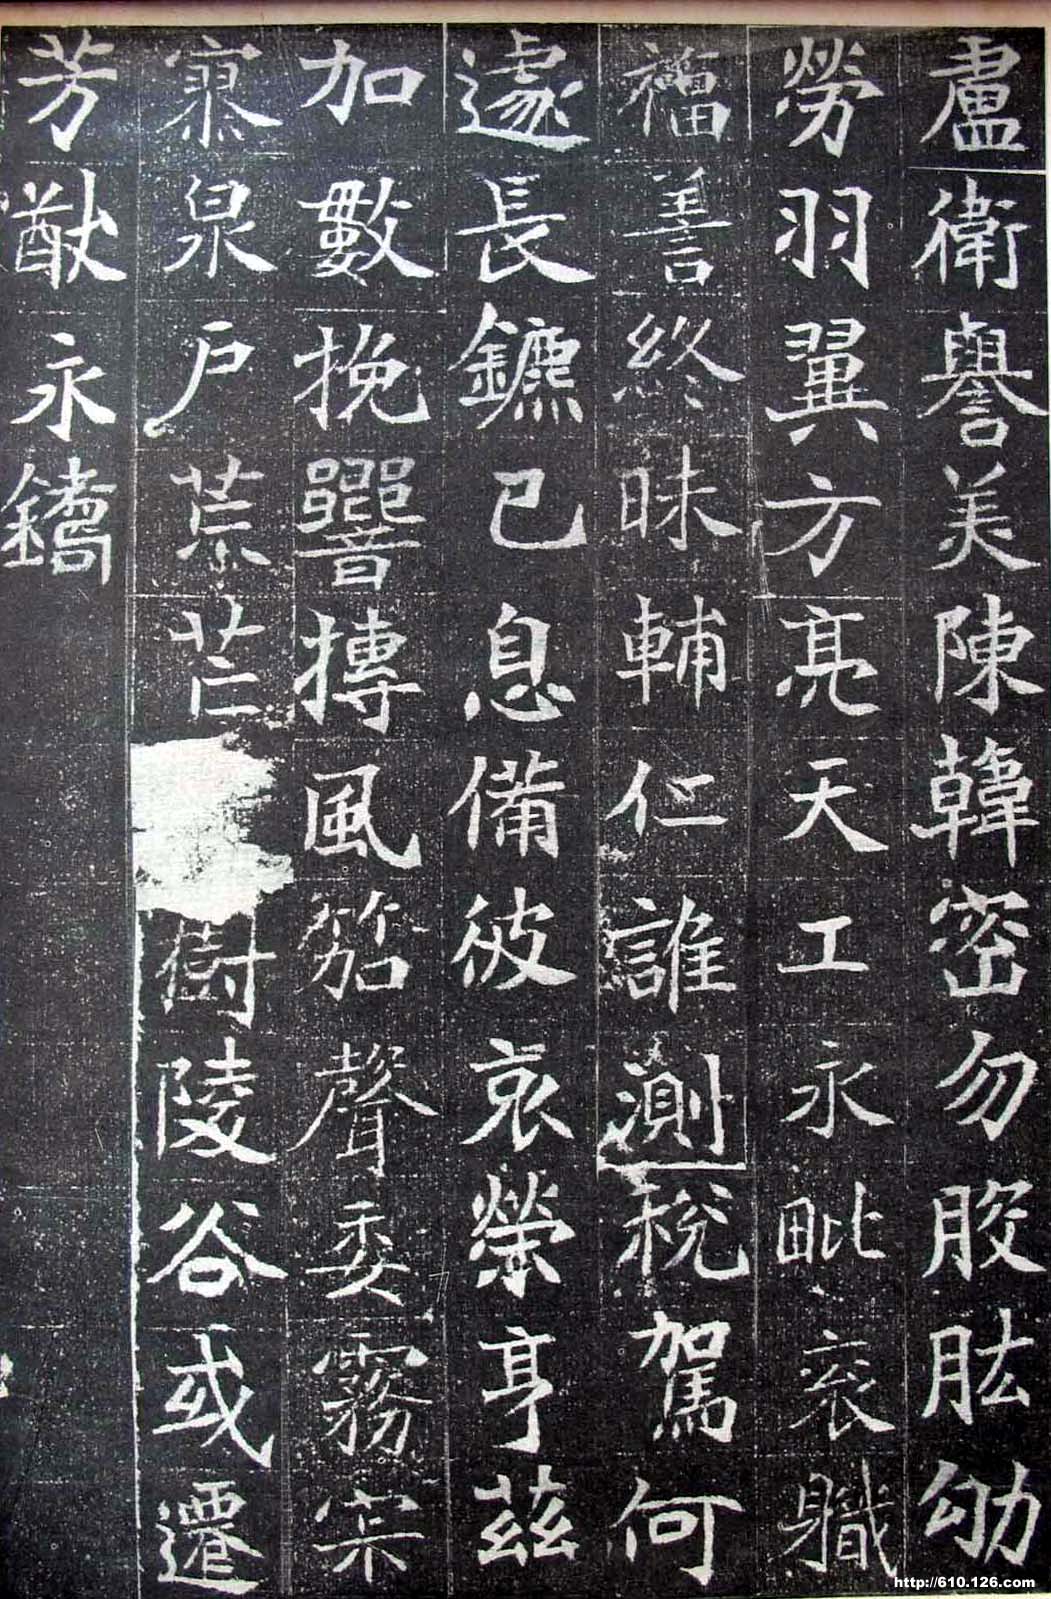 盧衛譽美陳韓密勿股肱劬
勞羽翼方亮天工永毗袞職
福善終昧輔仁誰測稅駕何
遽長鑣已息備彼哀榮亨茲
加數挽響摶風笳聲委霧寂
寥泉户荒芒樹陵谷或遷
芳猷永鐫
http://610.126.com